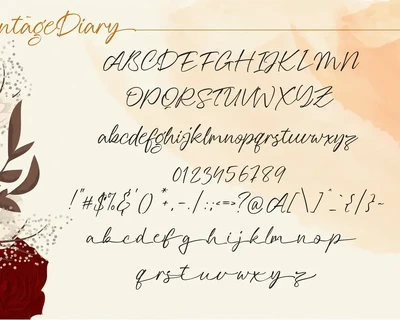 ntageDiary
ABCDEFGHIJKLMN
OPQRSTUVWXYZ
abcdefghijklmnopqrstuvwxyz
0123456789
!"#$%&'()*+,-./:;<=>?@A[\]^_`{|}~
abcdefghijklmnop
qrstuvwxyz